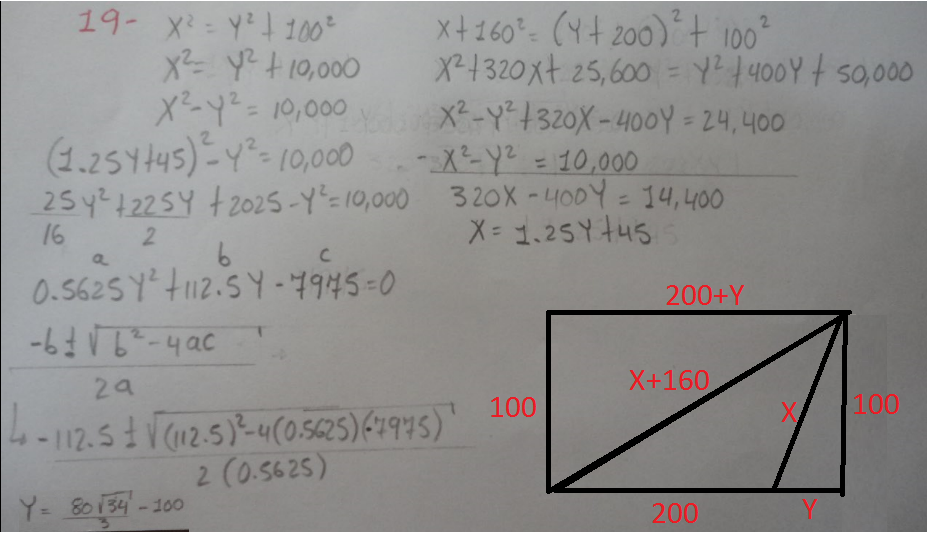 19- X² = Y² + 100²
X² = Y² + 10,000
X² - Y² = 10,000
(1.25Y+45)² - Y² = 10,000
25Y²/16 + 225Y/2 + 2025 - Y² = 10,000
a b c
0.5625Y² + 112.5Y - 7975 = 0
-b ± √(b² - 4ac) / 2a
↳ -112.5 ± √((112.5)² - 4(0.5625)(-7975)) / 2(0.5625)
Y = 80√34/3 - 100
X + 160² = (Y + 200)² + 100²
X² + 320X + 25,600 = Y² + 400Y + 50,000
X² - Y² + 320X - 400Y = 24,400
- X² - Y² = 10,000
320X - 400Y = 14,400
X = 1.25Y + 45
200+Y
X+160
100
X
100
200
Y